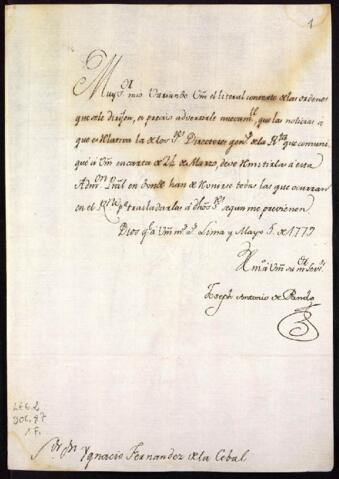 1
Muy S.or mio Variando Vm el literal contexto de las ordenes
que se le dirijen, es preciso advertirle nuevam.te, que las noticias à
que es la los S.res Directores gen.s de la R.ta que comuni
què à Vm en carta de 24 de Marzo, deve remitirlas à esta
Adm.on Pral en donde han de reunirse todas las que ocurran
en el R.no p.a trasladarlas à dhos S.res segun me previenen.
Dios g.e à Vm m.s a.s Lima y Mayo 5. de 1779
à Vm su m.s Serv.r
Joseph Antonio de Pando
LEG. 2
DOC. 87
1 F.
S.r D.n Ygnacio Fernandez de la Cebal